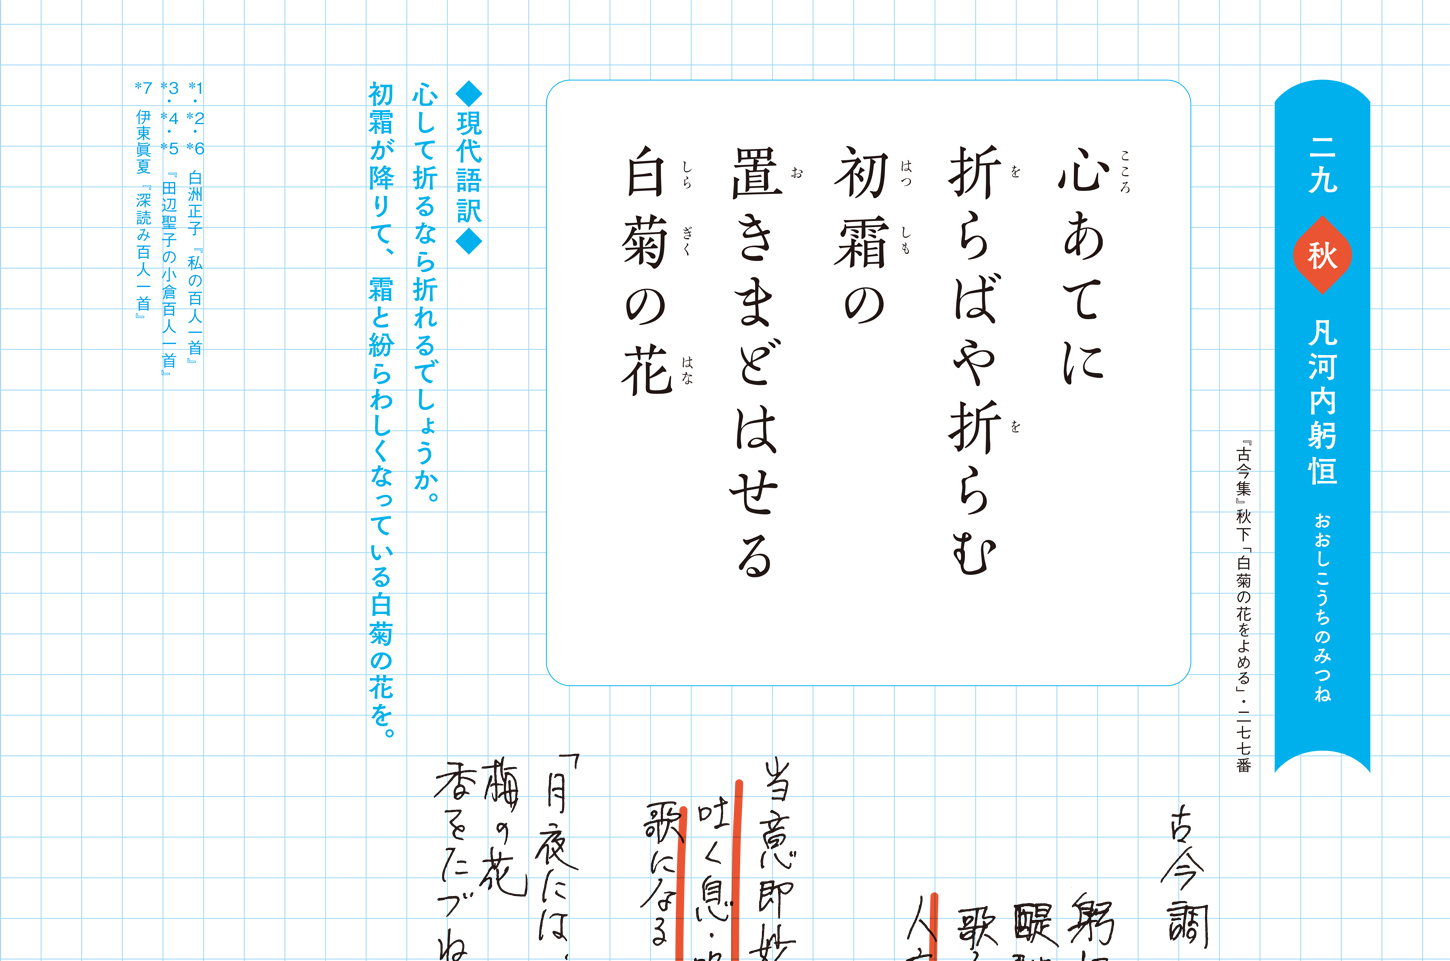 二九 秋 凡河内躬恒 おおしこうちのみつね
『古今集』秋下「白菊の花をよめる」・二七七番
心あてに
こころ
折らばや折らむ
を を
初霜の
はつ しも
置きまどはせる
お
白菊の花
しら ぎく はな
◆現代語訳◆
心して折るなら折れるでしょうか。
初霜が降りて、霜と紛らわしくなっている白菊の花を。
*1・*2・*6 白洲正子『私の百人一首』
*3・*4・*5 『田辺聖子の小倉百人一首』
*7 伊東眞夏『深読み百人一首』
古今調
躬
醍
歌
人
当意即妙
吐く息・
歌になる
「月夜には、
梅の花
香をたづね